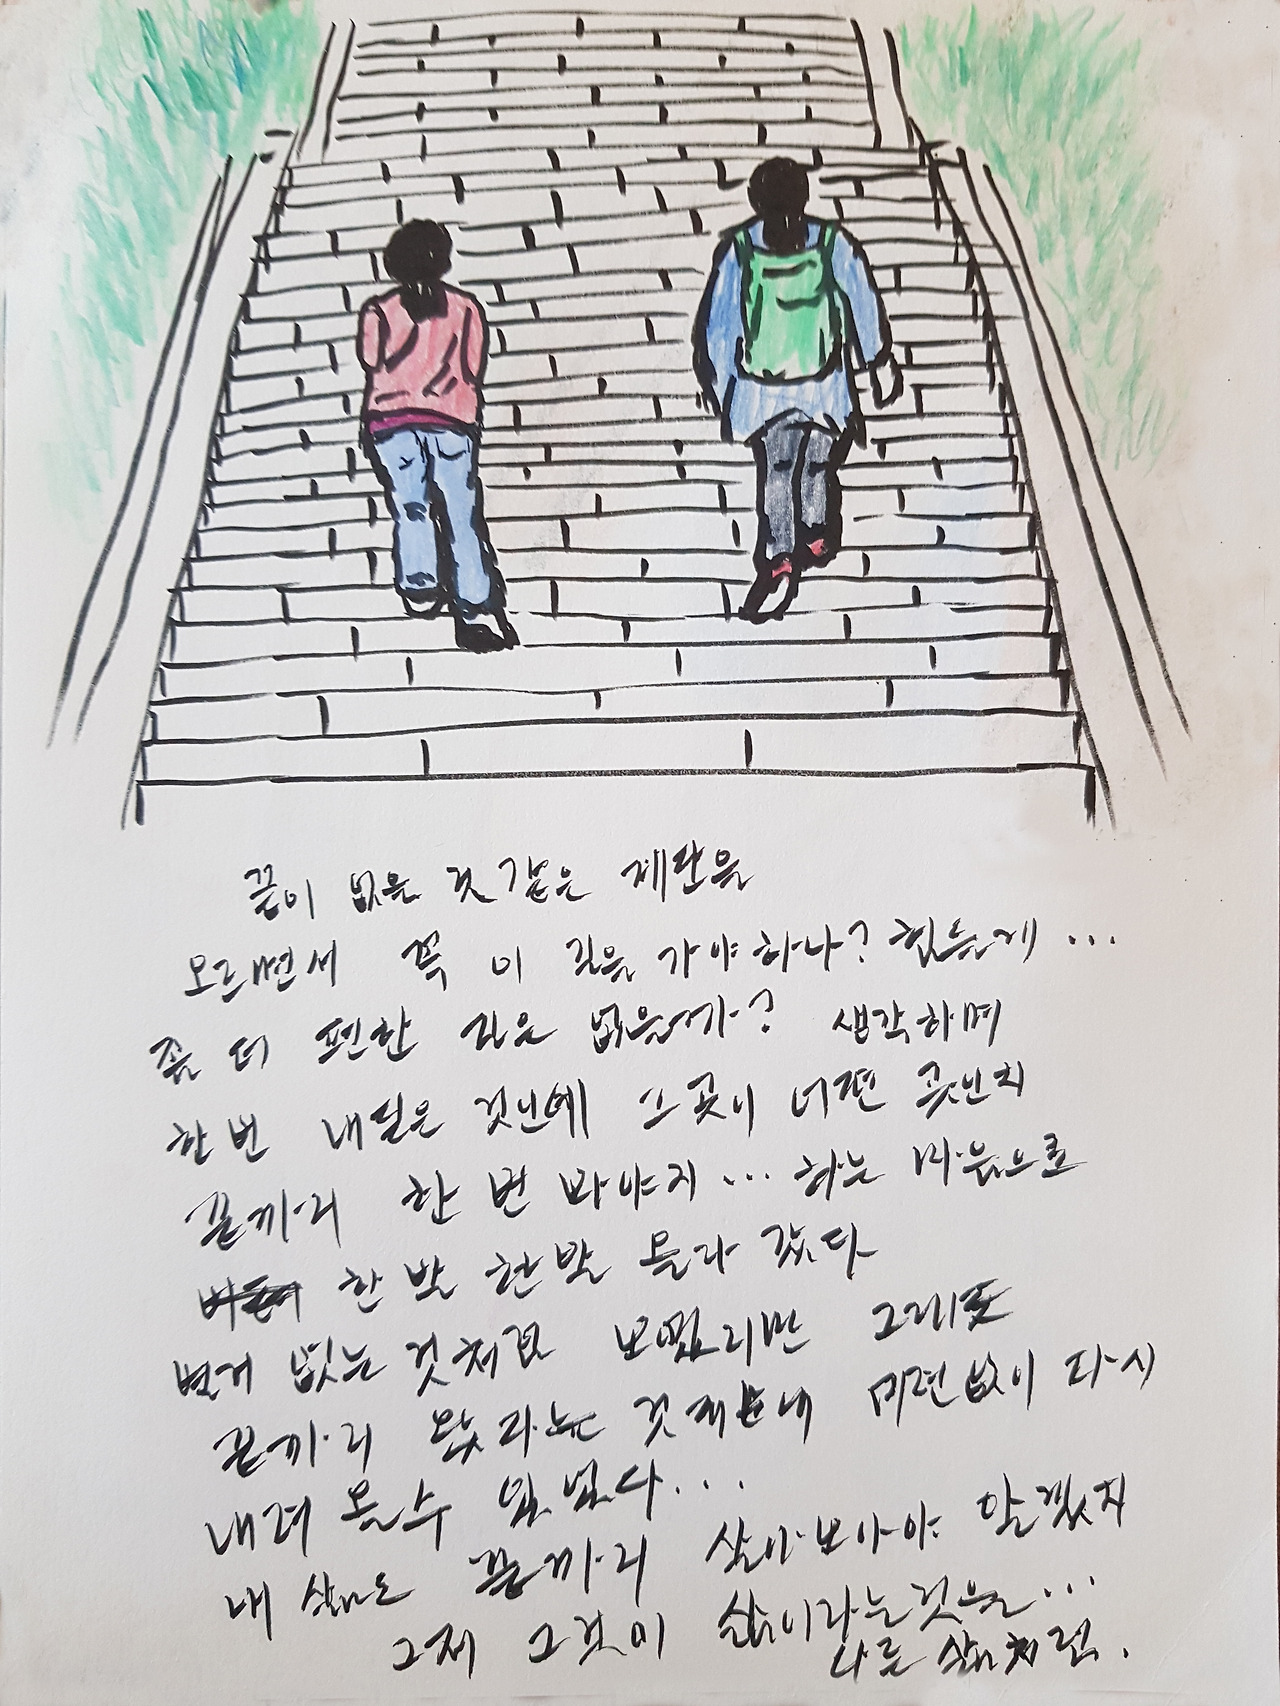 끝이 없을 것 같은 계단을
오르면서 꼭 이 길을 가야하나? 힘든데 ...
좀 더 편한 길은 없을까? 생각하며
한번 내딛은 것인데 그곳이 어떤 곳인지
끝까지 한 번 봐야지 ... 하는 마음으로
한발 한발 올라 갔다
별거 없는 것처럼 보였지만 그래도
끝까지 왔다는 것 때문에 미련없이 다시
내려 올 수 있었다 ...
내 삶도 끝까지 살아보아야 알겠지
그제 그것이 삶이라는 것을 ...
나른 삶처럼.